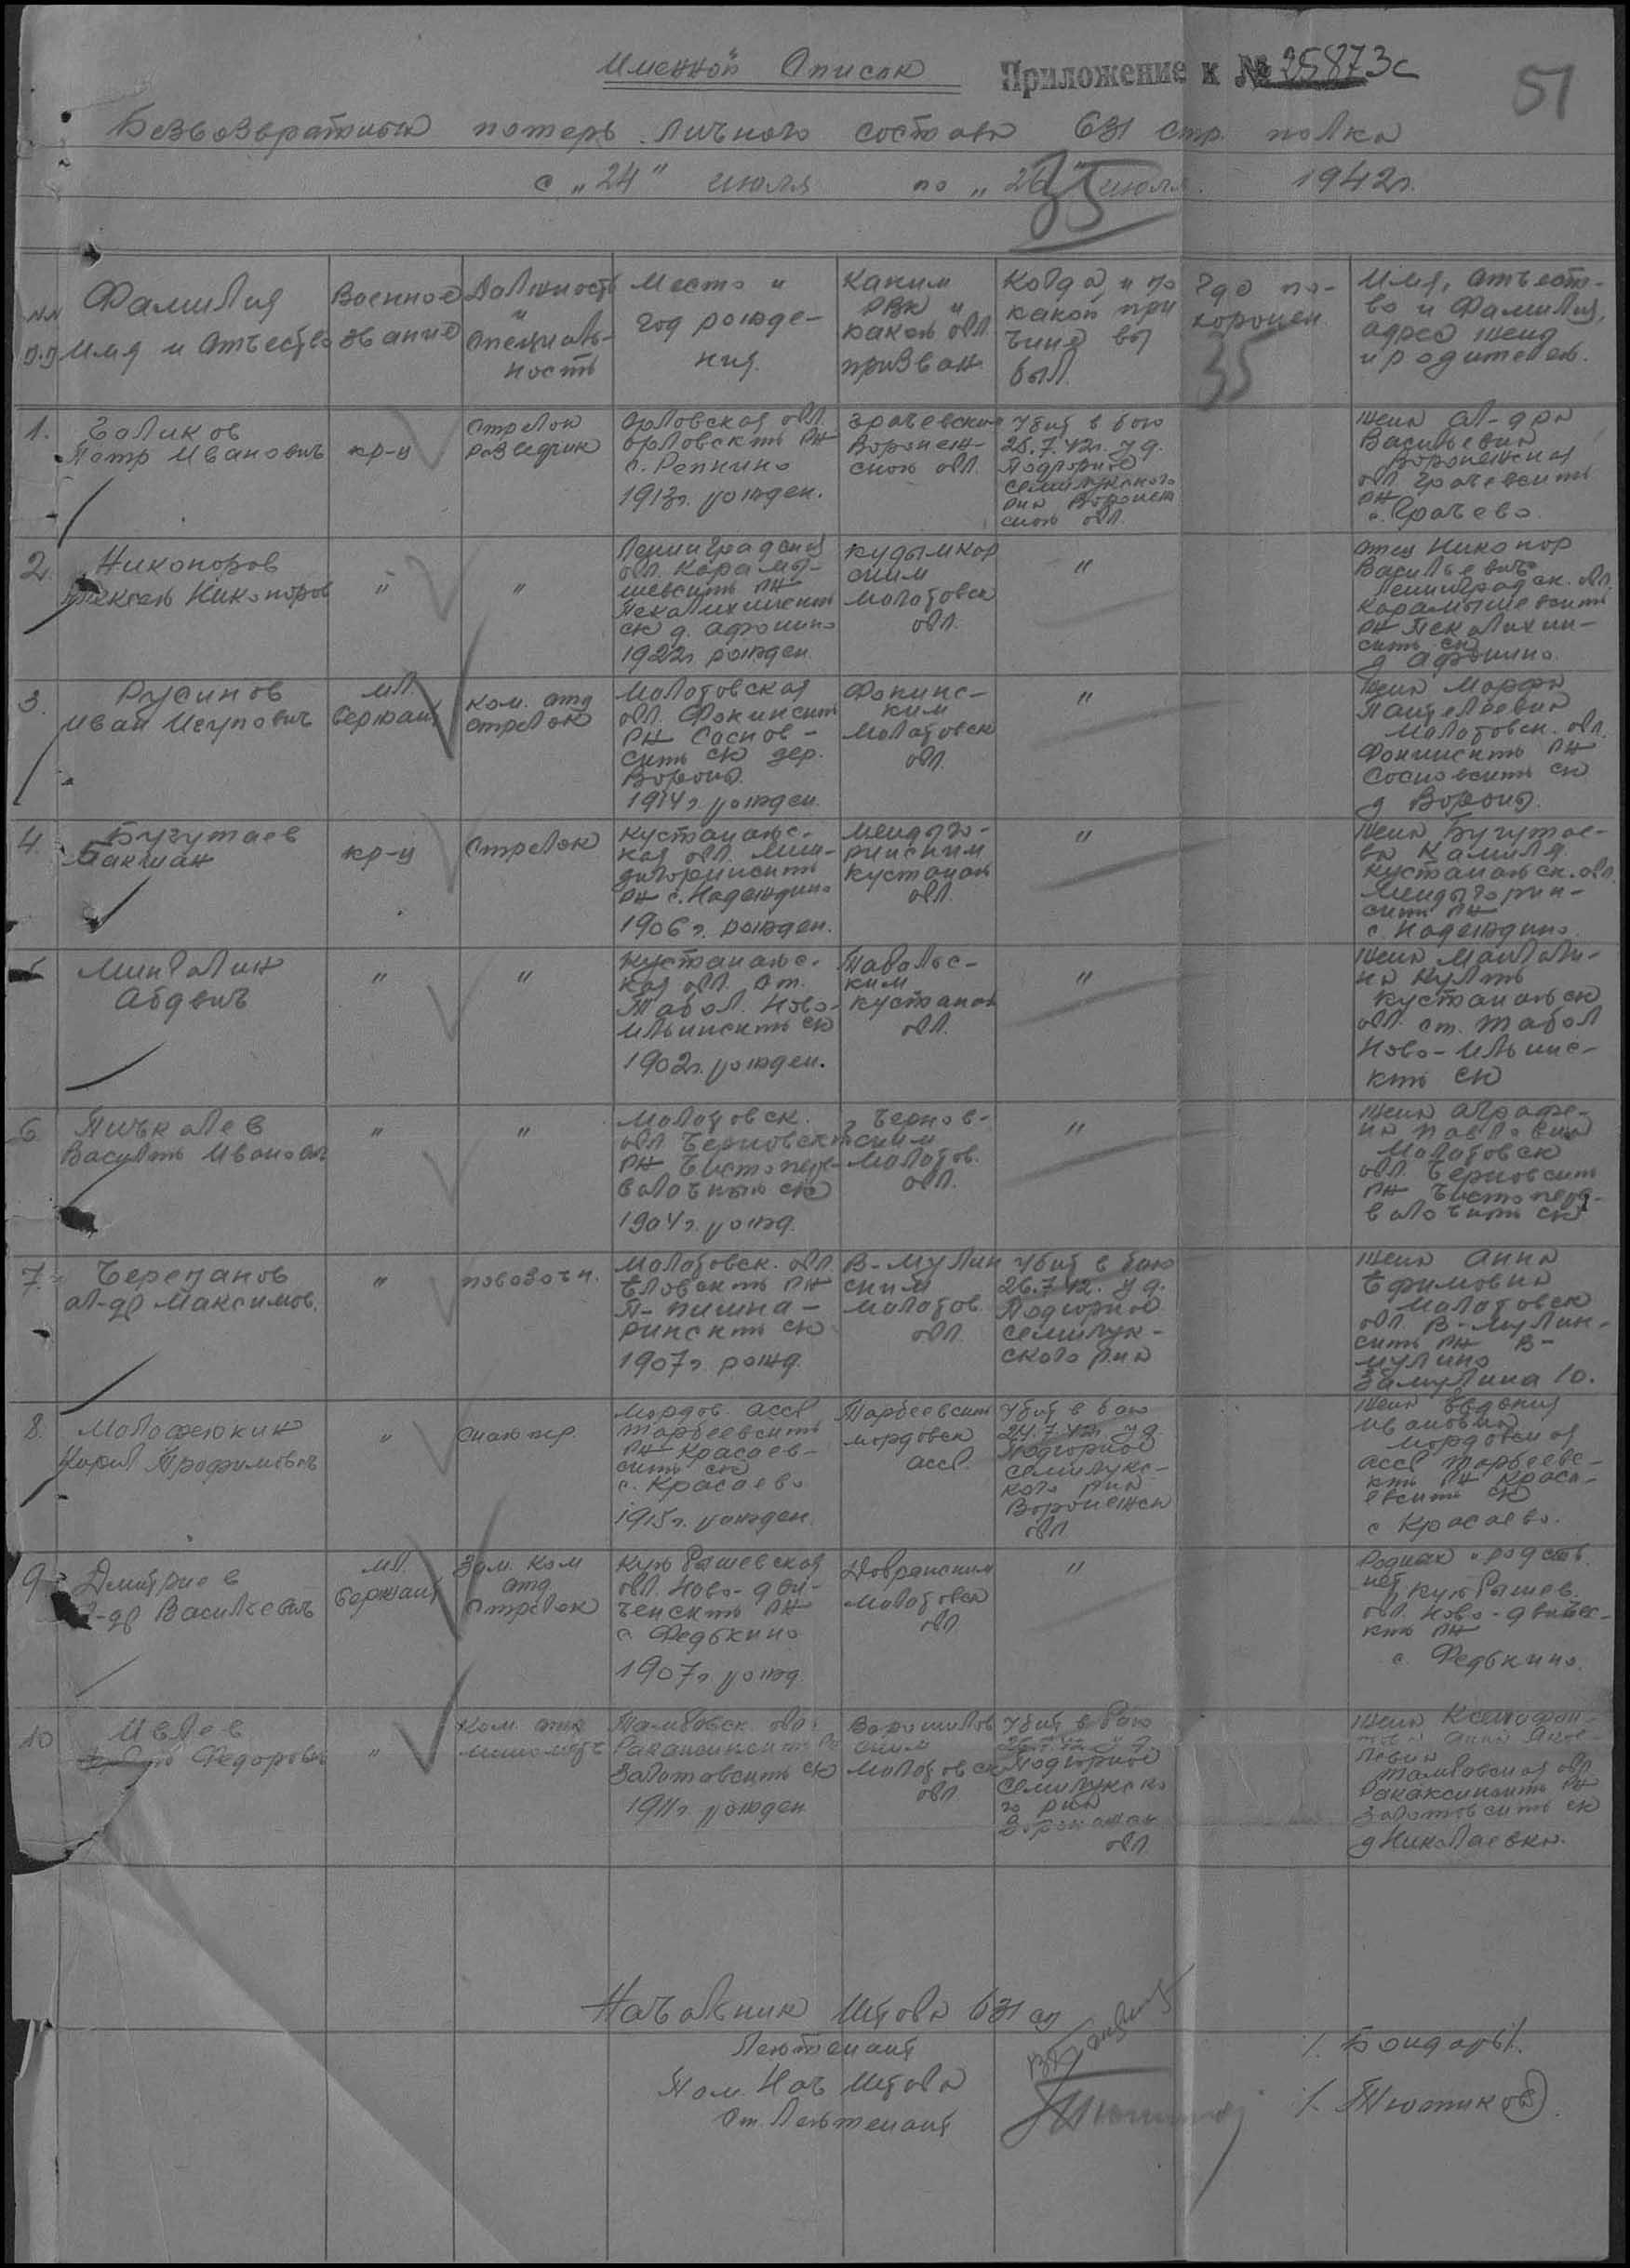 Именной Список
Приложение к № 25873с
51
Безвозвратных потерь личного состава 631 стр. полка
с „24" июля по „26" июля 1942г.
35
№№ п.п
Фамилия
Имя и Отчество
Военное
звание
Должность
и
специаль-
ность
Место и
год рожде-
ния.
Каким
РВК и
какой обл.
призван
Когда и по
какой при
чине вы
был.
Где по-
хоронен
35
Имя, отчест-
во и Фамилия,
адрес жены
и родителей.
1.
Голиков
Петр Иванович
кр-ц
Стрелок
разведчик
Орловская обл.
Орловский РН
с. Репнино
1913г. рожден.
Грачевским
Воронеж-
ской обл.
Убит в бою
26.7.42г. у д.
Подгорное
Семилукского
р-на Воронеж
ской обл.
Жена Ал-дра
Васильевна
Воронежская
обл. Грачевский
РН
с. Грачево.
2.
Никоноров
Алексей Никоноров
"
"
Ленинградская
обл. Карамы-
шевский РН
Пекалихинский
ск д. Афонино
1922г. рожден.
Кудымкор
ским
Молотовск
обл.
"
Отец Никонор
Васильевич
Ленинградск. обл.
Карамышевский
РН Пекалихин-
ский ск
д Афонино.
3.
Русинов
Иван Исупович
мл.
Сержант
Ком. отд
стрелок
Молотовская
обл. Фокинский
РН Соснов-
ский ск дер.
Вороны.
1914г. рожден.
Фокинс-
ким
Молотовск
обл.
"
Жена Марфа
Пантелеевна
Молотовск. обл.
Фокинский РН
Сосновский ск
д Вороны.
4.
Бугутаев
Бакшан
кр-ц
Стрелок
Кустанайс-
кая обл. Мен-
дыгоринский
РН с. Надеждино
1906г. рожден.
Мендыго-
ринским
Кустанай
обл.
"
Жена Бугутае-
ва Камиля
Кустанайск. обл.
Мендыгорин-
ский РН
с. Надеждино.
5
Мингалин
Абдвич
"
"
Кустанайс-
кая обл. ст.
Тобол. Ново-
Ильинский ск
1902г. рожден.
Тобольс-
ким
Кустанай
обл.
"
Жена
Кустанайск
обл. ст. Тобол
Ново-Ильинс-
кий ск
6
Пичкалев
Василий Иванович
"
"
Молотовск.
обл Черновский
РН Чистопере-
волочный ск
1904г. рожд.
Чернов-
ским
Молотов.
обл.
"
Жена Аграфе-
на Павловна
Молотовск
обл. Черновский
РН Чистопере-
волочный ск
7.
Черепанов
Ал-др Максимов.
"
повозочн.
Молотовск. обл.
Еловский РН
П-пишна-
ринский ск
1907г. рожд.
В-Мулин
ским
Молотов
обл.
Убит в бою
26.7.42. у д.
Подгорное
Семилук-
ского р-на
Жена Анна
Ефимовна
Молотовск
обл. В-Мулин-
ский РН В-
мулино
Замулина 10.
8.
Молофеюкин
Кирил Трофимович
"
Снайпер.
Мордов. АССР
Торбеевский
РН Красаев-
ский ск
с. Красаево
1915г. рожден.
Торбеевский
мордовск
асср.
Убит в бою
24.7.42г. у д.
Подгорное
Семилукс-
кого р-на
Воронежск
обл
Жена Евдокия
Ивановна
Мордовская
асср Торбеевс-
кий РН Краса-
евский ск
с Красаево.
9
Дмитриев
Ал-др Васильевич
мл.
Сержант
Зам. ком
отд
стрелок
Куйбышевская
обл. Ново-дви-
ченский РН
с Федькино
1907г. рожд
Добрянским
Молотовск
обл
"
Родных и родств.
нет
Куйбышев.
обл. Ново-двичес-
кий РН
с. Федькино.
10
Ивлев
Федорович
"
Ком. отд
миномет
Тамбовск. обл.
Ракаксинский РН
Золотовский ск
1911г. рожден
Ворошилов
ским
Молотовск
обл.
Убит в бою
26.7.42 у д.
Подгорное
Семилукско
го р-на
Воронежск
обл
Жена Ксенофон-
това Анна Яков-
левна
Тамбовская обл.
Ракаксинский РН
Золотовский ск
д Николаевка.
Начальник Штаба 631 сп
Лейтенант
/. Бондарь/.
Пом. Нач Штаба
Ст. Лейтенант
/. Тютиков/.